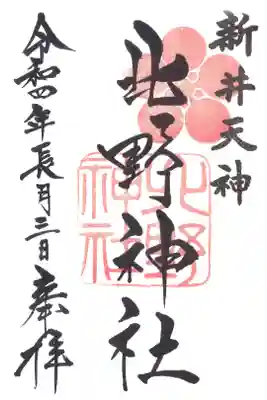 新井天神
北野神社
北野
神社
令和四年長月三日
奉拝